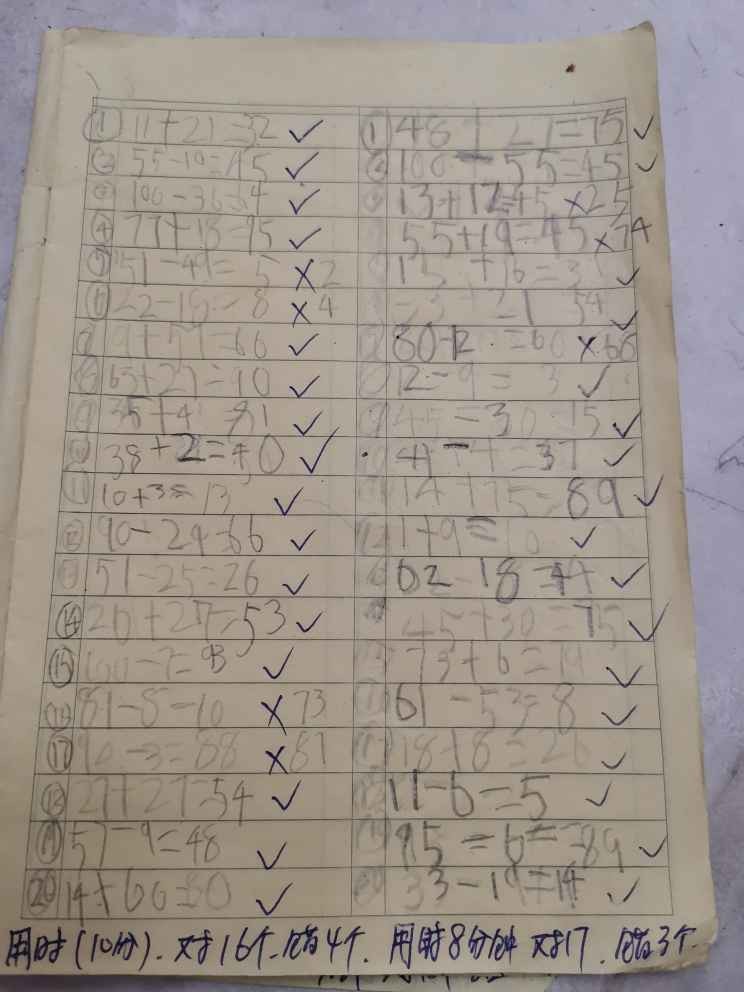 ① 11+21=32 ✓
② 55-10=45 ✓
③ 100-36=64 ✓
④ 77+18=95 ✓
⑤ 51-49=5 ×2
⑥ 22-18=8 ×4
✓
⑧ 63+27=90 ✓
⑨ 35+4 =81 ✓
⑩ 38+2=40 ✓
⑪ 10+3=13 ✓
⑫ 90-24=66 ✓
51-25=26 ✓
⑭ 26+27=53 ✓
⑮ 100-7=93 ✓
⑯ 81-8=10 ×73
⑰ 90-3=88 ×87
⑱ 27+27=54 ✓
⑲ 57-9=48 ✓
⑳ 14+66=80 ✓
用时(10分).对16个.错4个.
① 48+27=75 ✓
② 100-55=45 ✓
③ 13+12=45 ×25
55+19=45 ×74
✓
✓
80-12=60 ×68
12-9=3 ✓
45-30=15 ✓
41-4=37 ✓
14+75=89 ✓
1+9= 0 ✓
62-18=44 ✓
45+30=75 ✓
73+6=19 ✓
61-53=8 ✓
18+8=26 ✓
11-6=5 ✓
95-6=89 ✓
33-19=14 ✓
用时8分钟 对17.错3个.